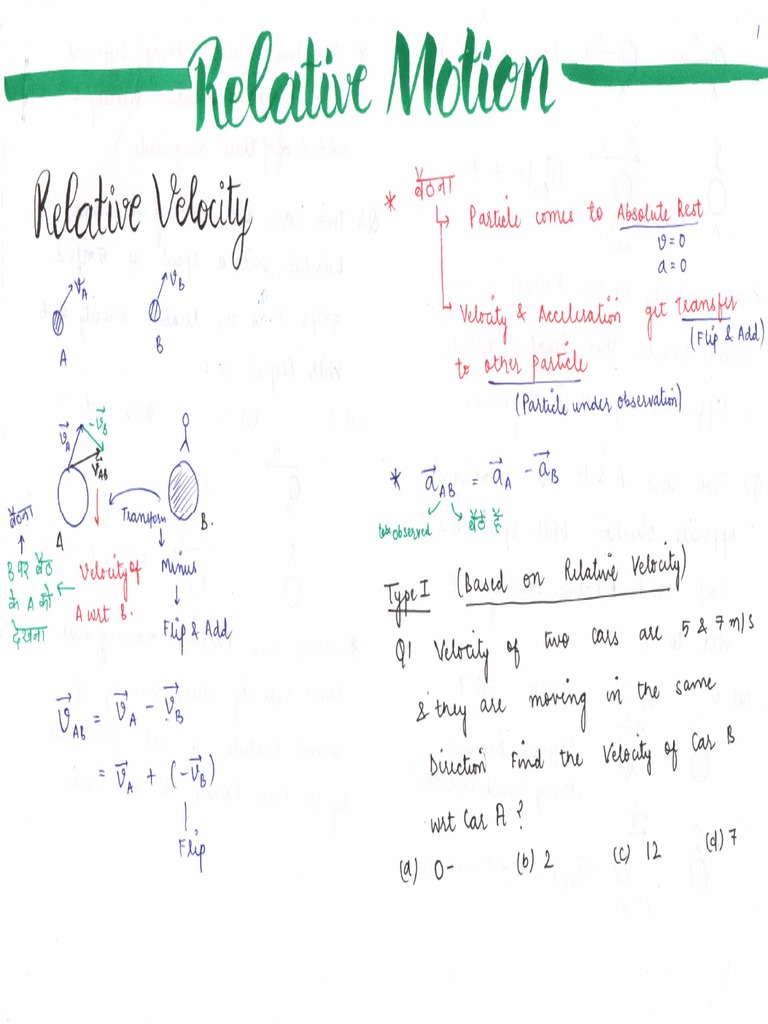 1
Relative Motion
Relative Velocity
v⃗A
v⃗B
A
B
v⃗A
-v⃗B
v⃗AB
A
B.
Transform
Minus
Flip & Add
Velocity of
A wrt B.
बैठना
B पर बैठ
के A को
देखना
v⃗AB = v⃗A - v⃗B
= v⃗A + (-v⃗B)
Flip
* बैठना
Particle comes to Absolute Rest
v=0
a=0
Velocity & Acceleration get Transfer
(Flip & Add)
to other particle
(Particle under observation)
* a⃗AB = a⃗A - a⃗B
observed बैठे हैं
Type I (Based on Relative Velocity)
Q1 Velocity of two cars are 5 & 7 m/s
& they are moving in the same
Direction Find the Velocity of Car B
wrt Car A?
(a) 0- (b) 2 (c) 12 (d) 7